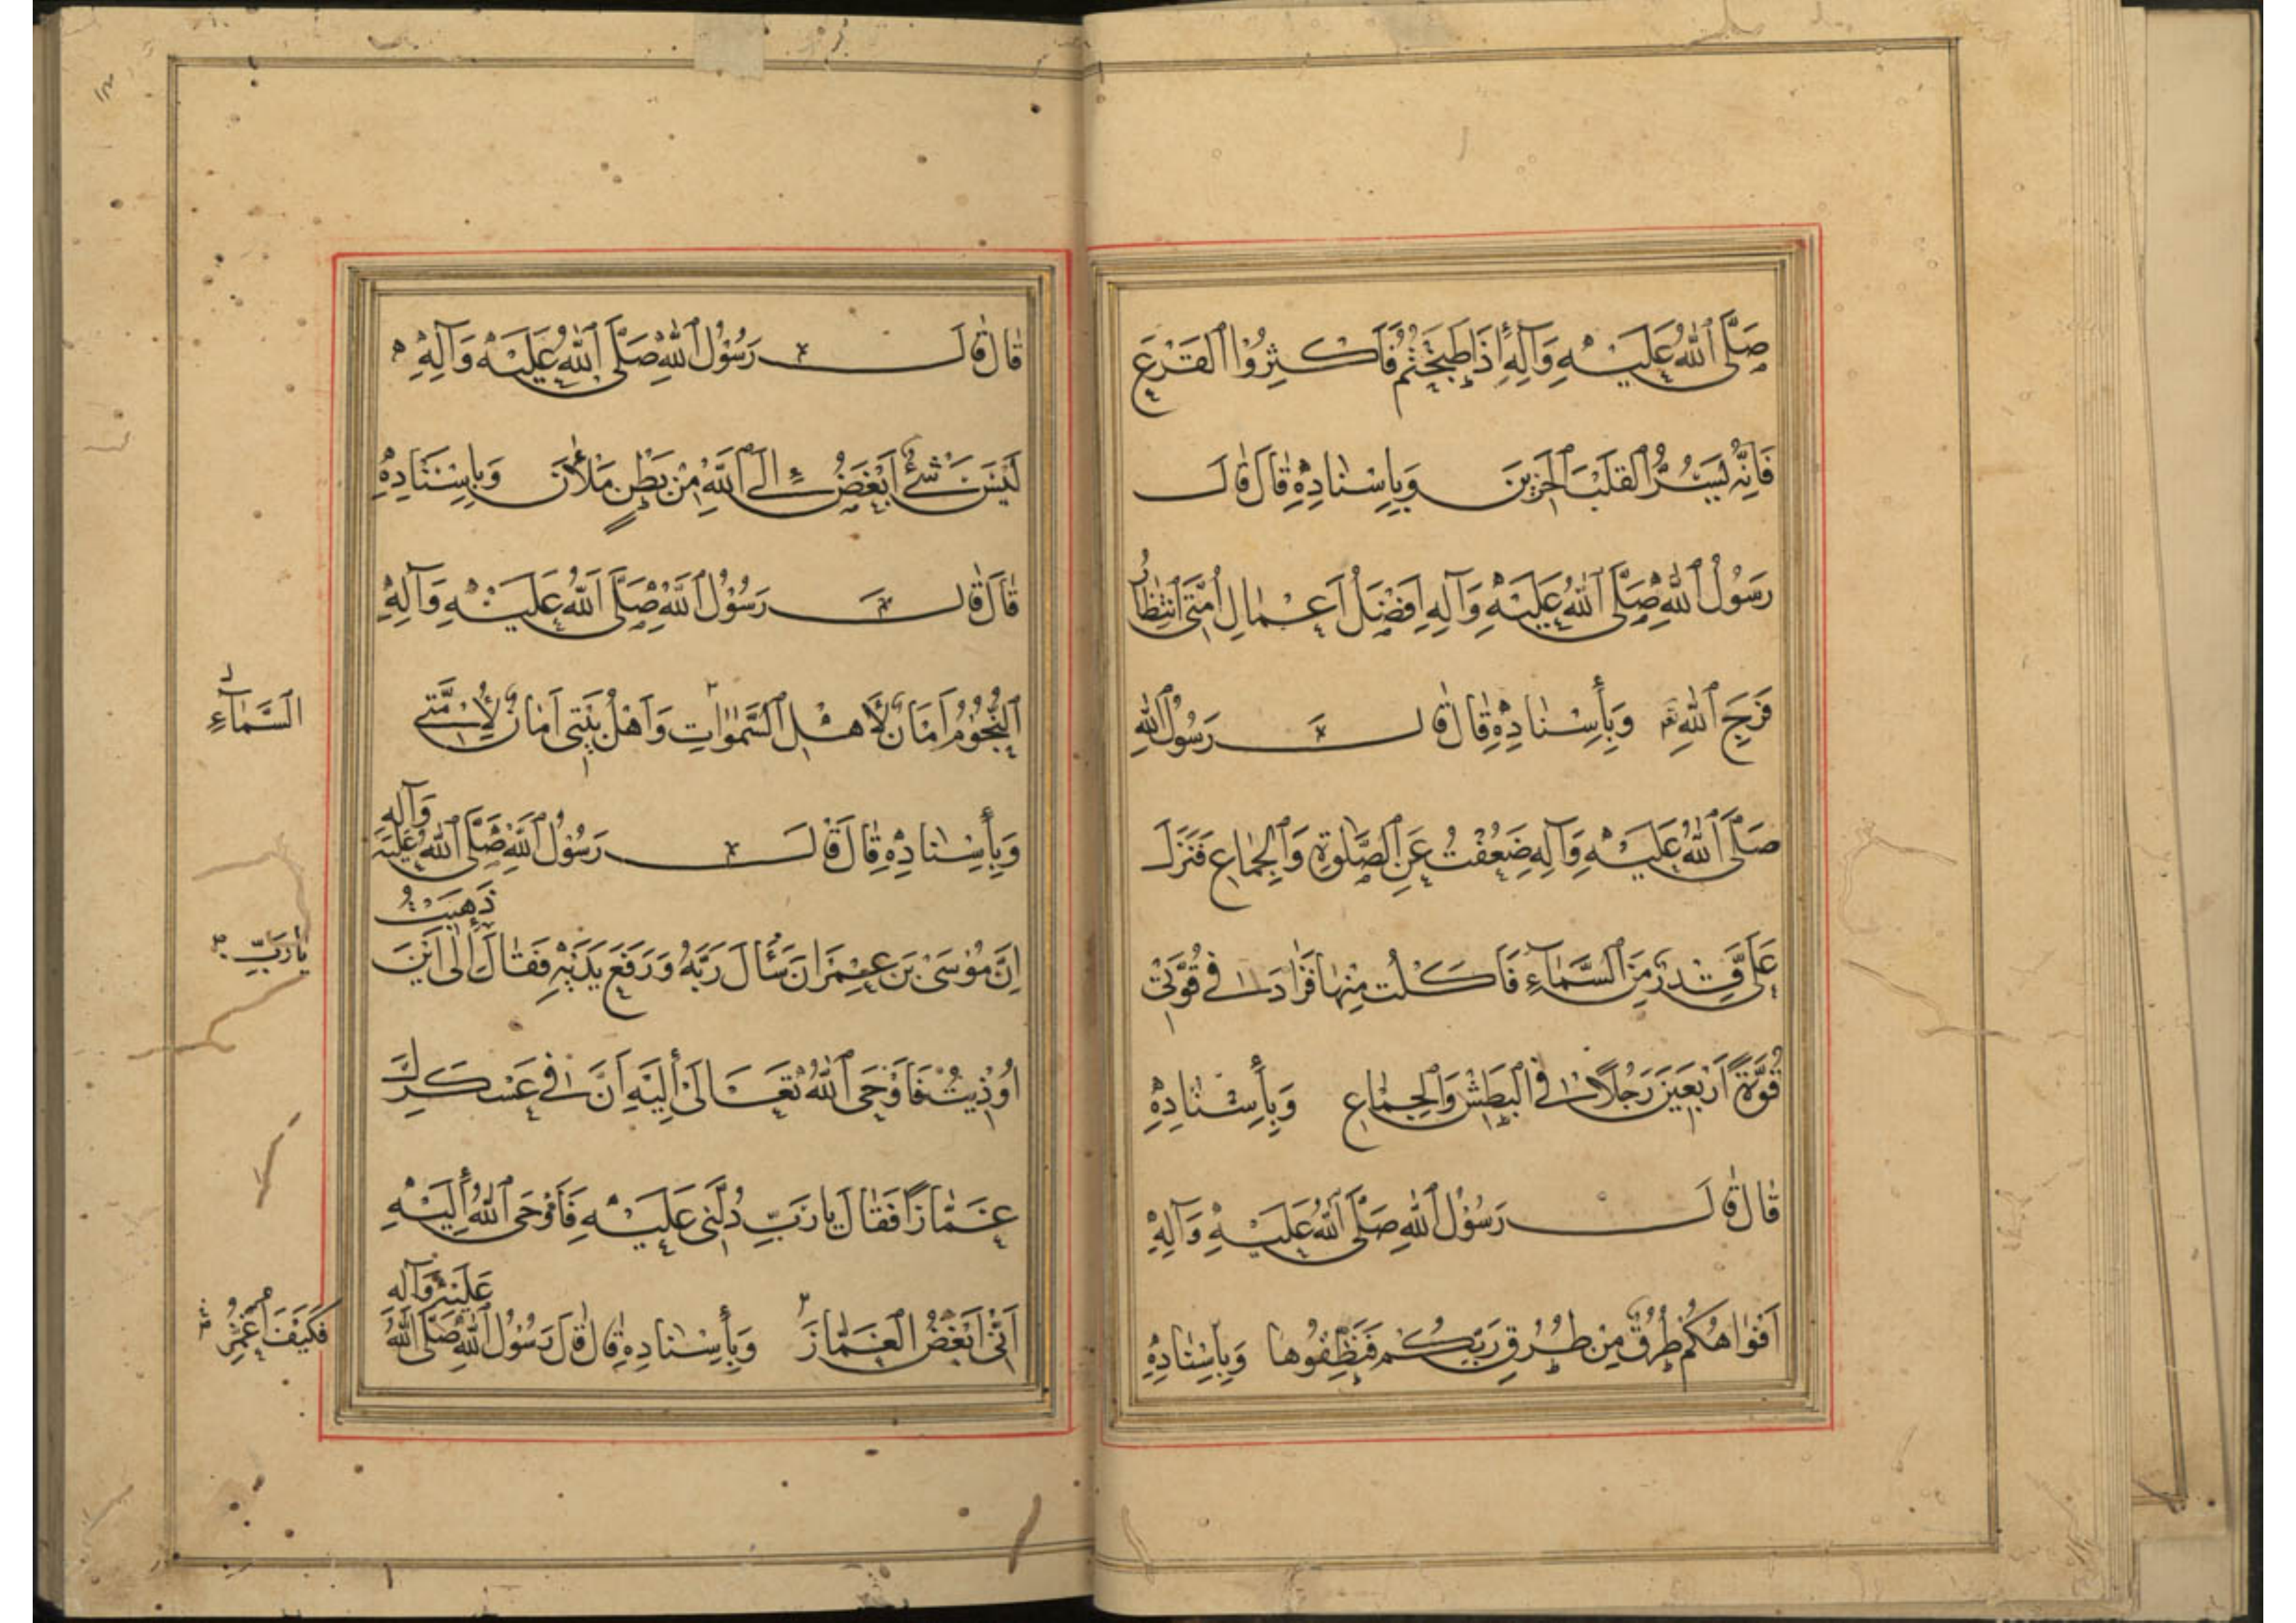 صَلَّى ٱللهُ عَلَيْهِ وَآلِهِ إِذَا طَبَخْتُمْ فَأَكْثِرُوا ٱلْقَرْعَ
فَإِنَّهُ يَسُرُّ ٱلْقَلْبَ ٱلْحَزِينَ وَبِإِسْنَادِهِ قَالَ قَالَ
رَسُولُ ٱللهِ صَلَّى ٱللهُ عَلَيْهِ وَآلِهِ أَفْضَلُ أَعْمَالِ أُمَّتِي ٱنْتِظَارُ
فَرَجِ ٱللهِ وَبِأِسْنَادِهِ قَالَ قَالَ رَسُولُ ٱللهِ
صَلَّى ٱللهُ عَلَيْهِ وَآلِهِ ضَعُفْتُ عَنِ ٱلصَّلٰوةِ وَٱلْجِمَاعِ فَنَزَلَ
عَلَيَّ قِدْرٌ مِنَ ٱلسَّمَآءِ فَأَكَلْتُ مِنْهَا فَزَادَ فِي قُوَّتِي
قُوَّةَ أَرْبَعِينَ رَجُلًا فِي ٱلْبَطْشِ وَٱلْجِمَاعِ وَبِأِسْنَادِهِ
قَالَ قَالَ رَسُولُ ٱللهِ صَلَّى ٱللهُ عَلَيْهِ وَآلِهِ
أَفْوَاهُكُمْ طُرُقٌ مِنْ طُرُقِ رَبِّكُمْ فَنَظِّفُوهَا وَبِأِسْنَادِهِ
قَالَ قَالَ رَسُولُ ٱللهِ صَلَّى ٱللهُ عَلَيْهِ وَآلِهِ
لَيْسَ شَيْءٌ أَبْغَضُ إِلَى ٱللهِ مِنْ بَطْنٍ مَلْأَنَ وَبِإِسْنَادِهِ
قَالَ قَالَ رَسُولُ ٱللهِ صَلَّى ٱللهُ عَلَيْهِ وَآلِهِ
ٱلنُّجُومُ أَمَانٌ لِأَهْلِ ٱلسَّمٰوَاتِ وَأَهْلُ بَيْتِي أَمَانٌ لِأُمَّتِي
السَّمَآءِ
وَبِأِسْنَادِهِ قَالَ قَالَ رَسُولُ ٱللهِ صَلَّى ٱللهُ عَلَيْهِ وَآلِهِ
إِنَّ مُوسَى بْنَ عِمْرَانَ سَأَلَ رَبَّهُ وَرَفَعَ يَدَيْهِ فَقَالَ إِلٰى أَيْنَ ذَهَبْتُ
يَا رَبِّ
أُوذِيتُ فَأَوْحَى ٱللهُ تَعَالَى إِلَيْهِ أَنَّ فِي عَسْكَرِكَ
غَمَّازًا فَقَالَ يَا رَبِّ دُلَّنِي عَلَيْهِ فَأَوْحَى ٱللهُ إِلَيْهِ
أَنِّي أُبْغِضُ ٱلْغَمَّازَ وَبِأِسْنَادِهِ قَالَ قَالَ رَسُولُ ٱللهِ صَلَّى ٱللهُ عَلَيْهِ وَآلِهِ
فَكَيْفَ أَغْمِزُ